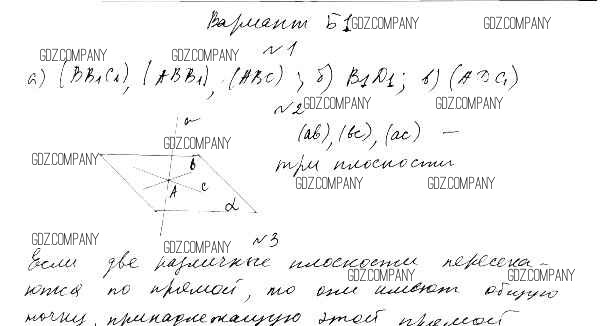 Вариант Б1
GDZ.COMPANY GDZ.COMPANY
№1
GDZ.COMPANY GDZ.COMPANY
а) (BB₁C₁), (ABB₁), (ABC); б) B₁D₁; в) (ADC₁)
№2
GDZ.COMPANY GDZ.COMPANY
a
(ab), (bc), (ac) —
GDZ.COMPANY
GDZ.COMPANY
b
три плоскости
A c
GDZ.COMPANY GDZ.COMPANY
α
GDZ.COMPANY
№3
GDZ.COMPANY
Если две различные плоскости пересека-
GDZ.COMPANY GDZ.COMPANY
ются по прямой, то они имеют общую
точку, принадлежащую этой прямой